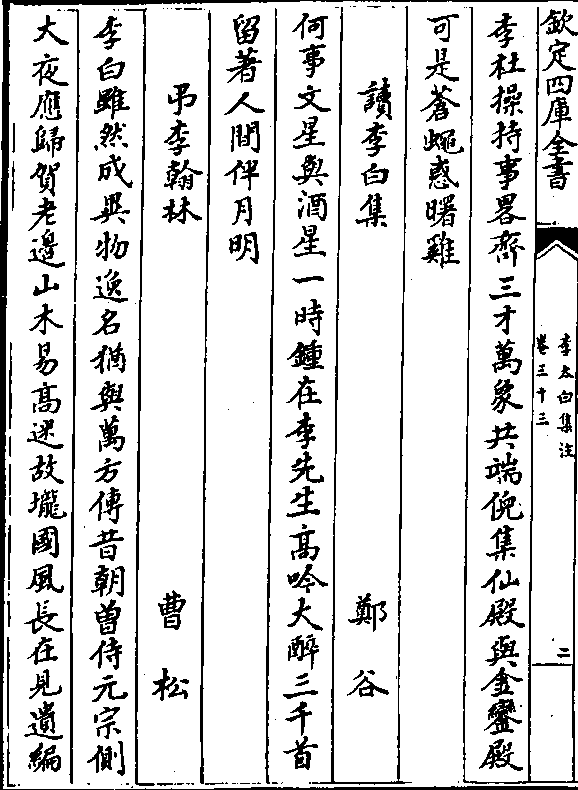 欽定四庫全書
李太白集注
卷三十三
二
李杜操持事畧齊三才萬象共端倪集仙殿與金鑾殿
可是蒼蠅惑曙雞
讀李白集
鄭谷
何事文星與酒星一時鍾在李先生高吟大醉三千首
留著人間伴月明
弔李翰林
曹松
李白雖然成異物逸名猶與萬方傳昔朝曽侍元宗側
大夜應歸賀老邊山木易高迷故壠國風長在見遺編